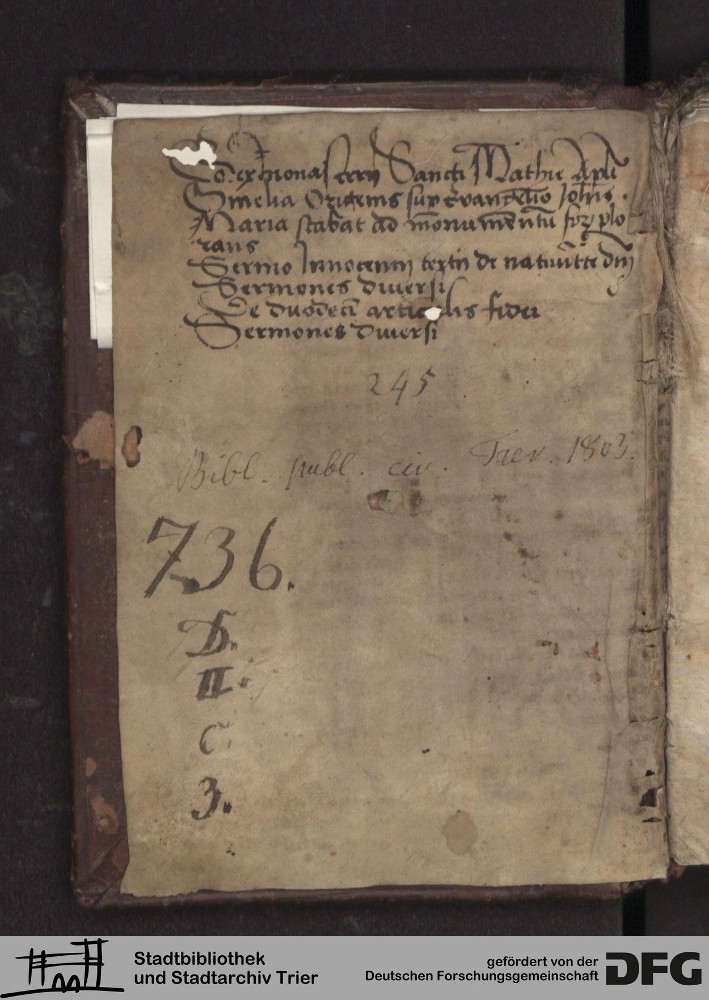 Codex monasterij Sancti Mathie Apli
Omelia Origenis sup Evangelio Johis.
Maria stabat ad monumentu foris plo
rans
Sermo Innocentij tertij de nativitate dni
Sermones diversi
De duodeci articulis fidei
Sermones diversi
245
Bibl. publ. civ. Trev. 1803.
736.
D.
II.
C.
3.
Stadtbibliothek
und Stadtarchiv Trier
gefördert von der
Deutschen Forschungsgemeinschaft
DFG